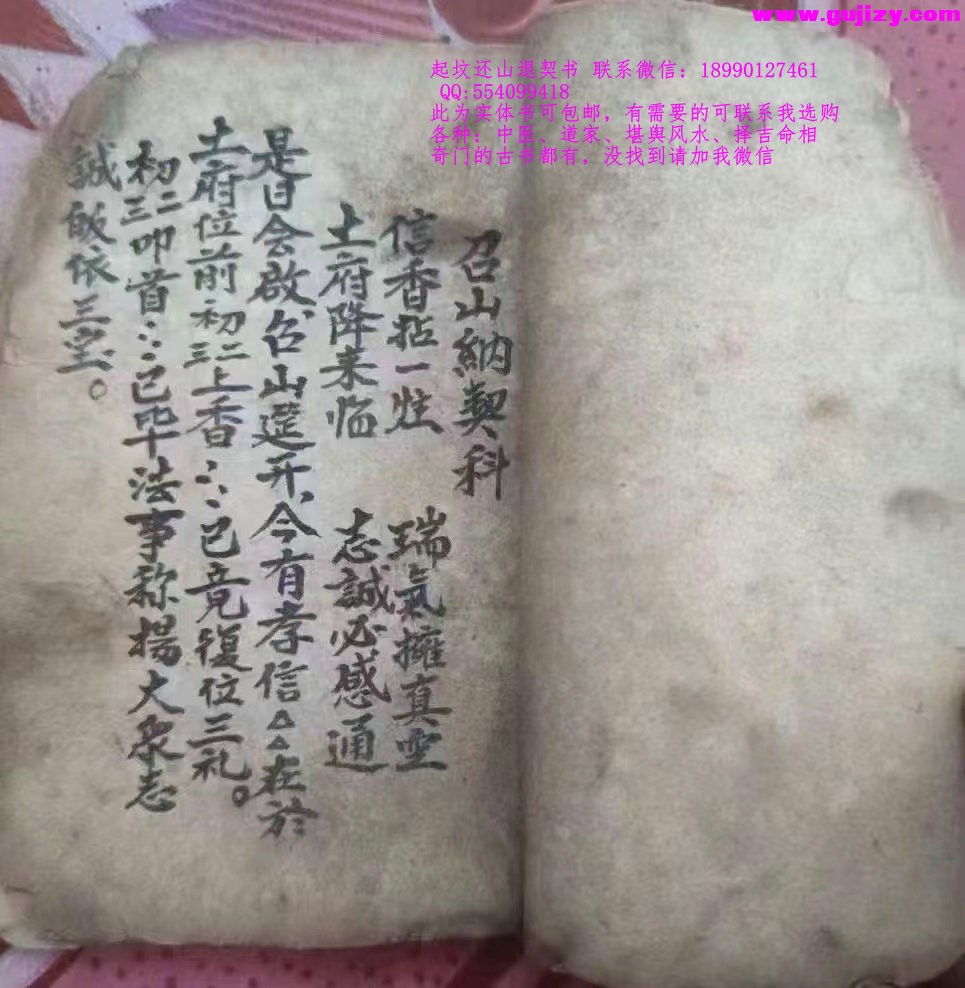 www.gujizy.com
起坟还山退契书 联系微信：18990127461
QQ:554099418
此为实体书可包邮，有需要的可联系我选购
各种；中医、道家、堪舆风水、择吉命相
奇门的古书都有，没找到请加我微信
召山納契科
信香拈一炷 瑞氣擁真空
土府降来临 志誠必感通
是日会啟、召山筵开、今有孝信△△在於
土府位前初二三上香∴已竟復位三礼。
初二三叩首∴已毕法事称揚大衆志
誠皈依三宝。